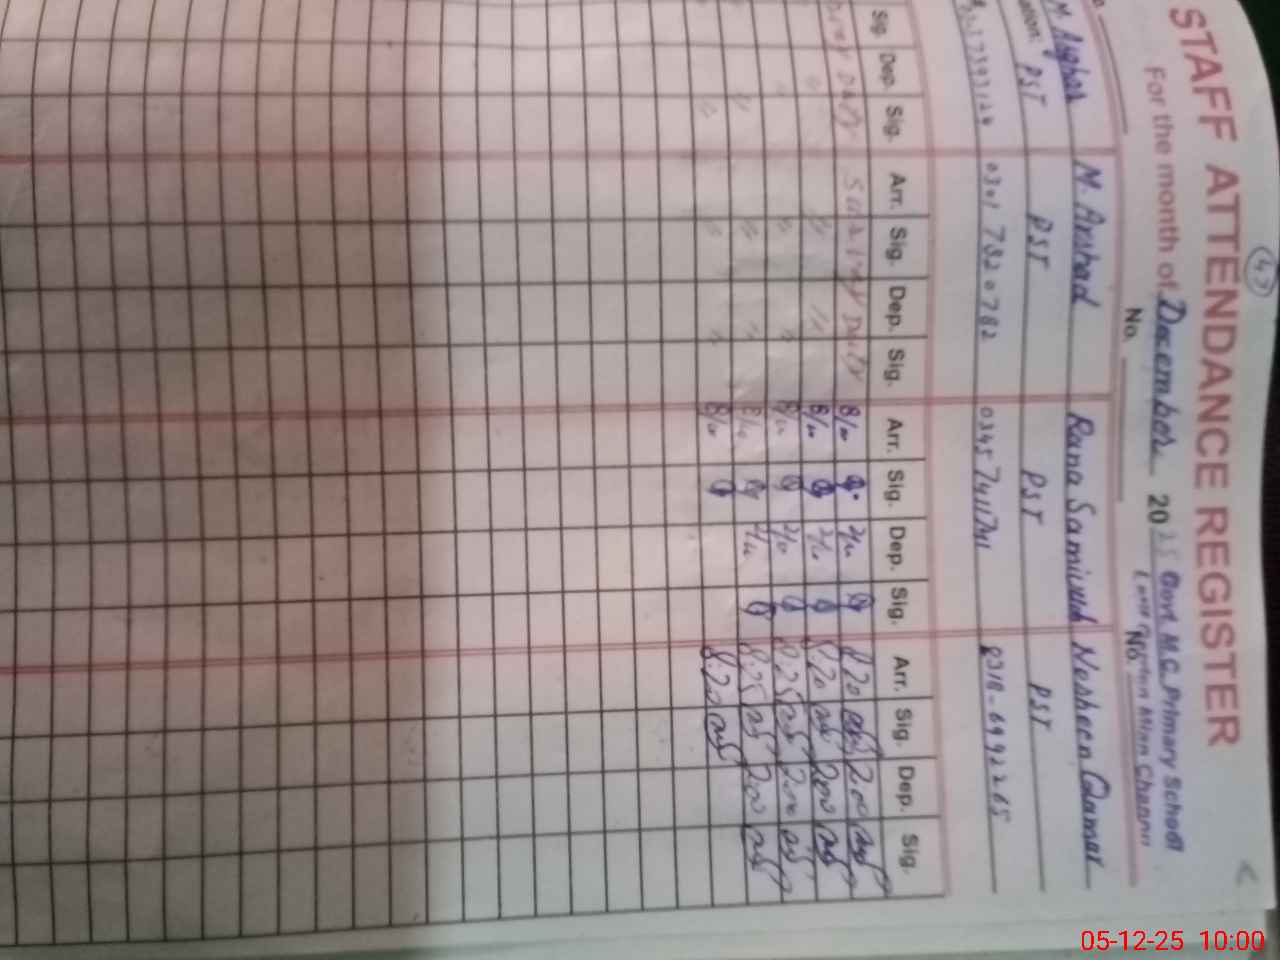 47
STAFF ATTENDANCE REGISTER
For the month of December 2025 Govt M.C. Primary School
Mian Channu
No. No.
M. Asghar M. Arshad Rana Samiullah Nosheen Qamar
PST PST PST PST
0301 7820782 0345 7411741 0318-6992265
Sig. Dep. Sig. Arr. Sig. Dep. Sig. Arr. Sig. Dep. Sig. Arr. Sig. Dep. Sig.
Duty Survey Duty 8/00 2/00 8 20 2 00
" " " 8/00 2/00 8 20 200
" " " 8/00 2/00 8.25 200
" " " 8/00 2/00 8.25 200
" " " 8/00 8.20
05-12-25 10:00